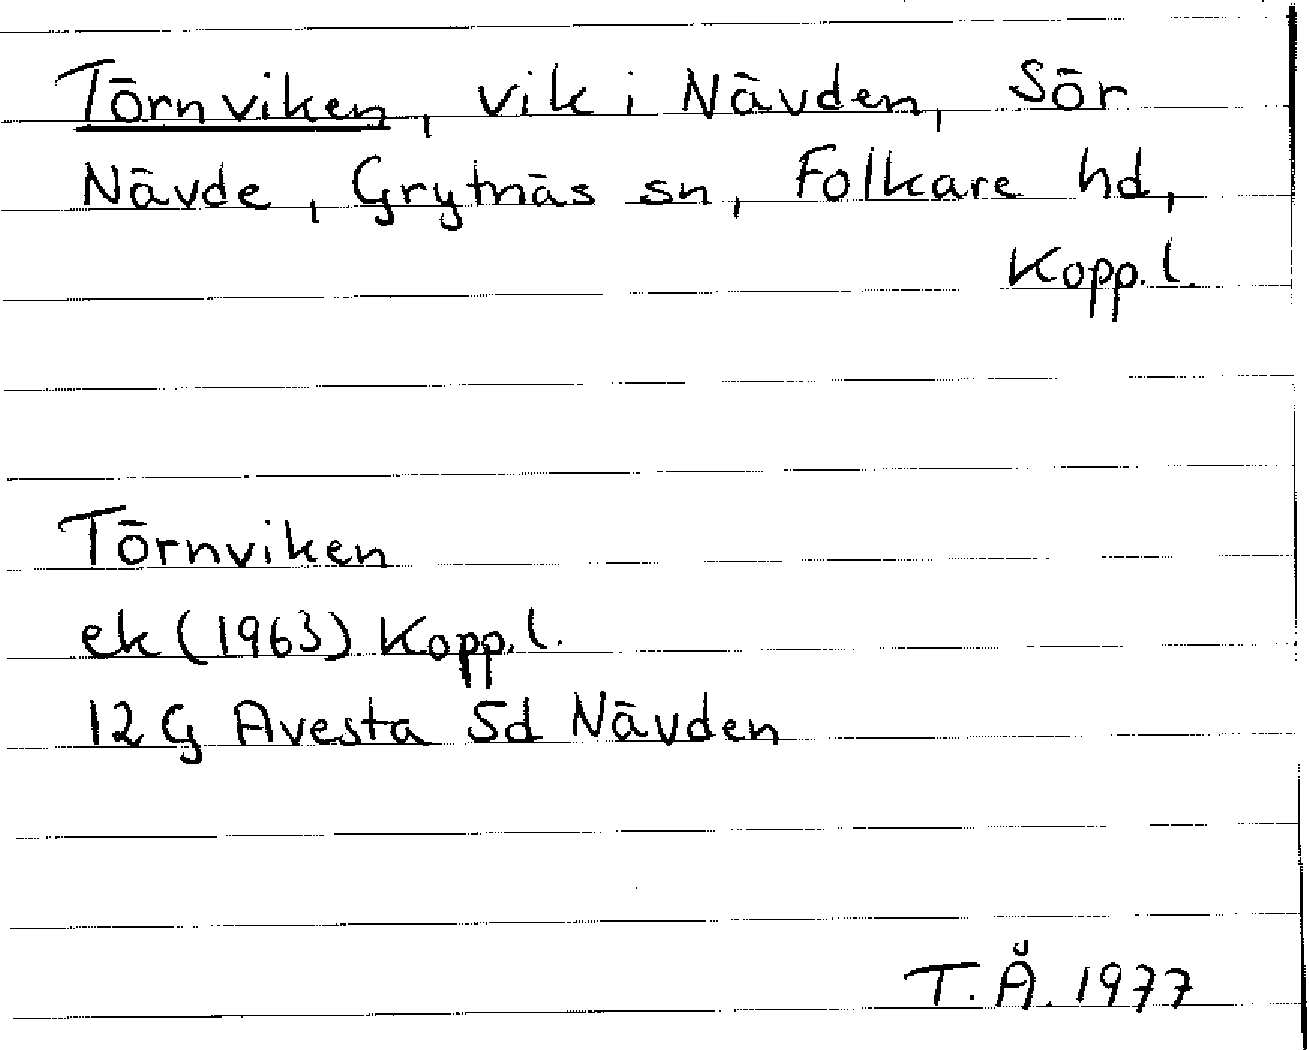 Törnviken, vik i Nävden, Sör
Nävde, Grytnäs sn, Folkare hd,
Kopp.l.
Törnviken
ek (1963) Kopp.l.
12G Avesta Sd Nävden
T.Å. 1977